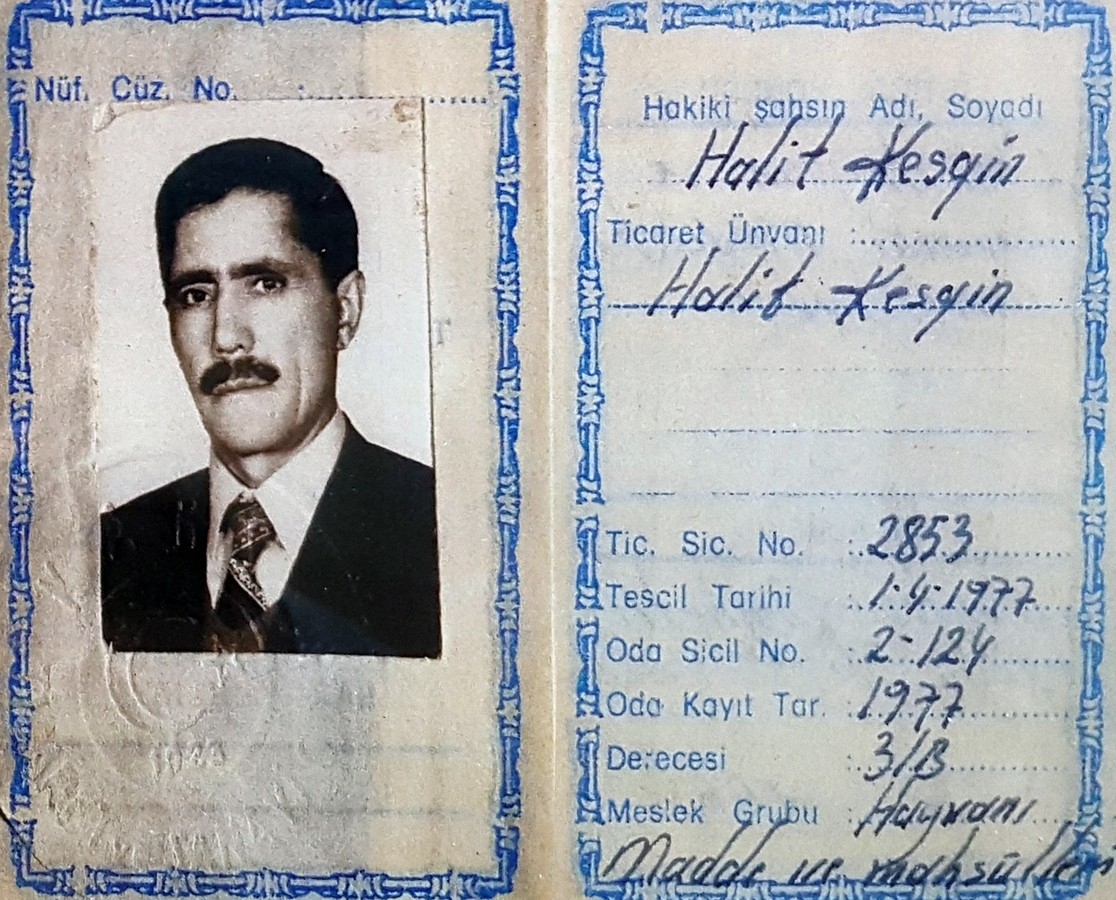 Nüf. Cüz. No. :
Hakiki şahsın Adı, Soyadı
Halit Kesgin
Ticaret Ünvanı :
Halit Kesgin
Tic. Sic. No. : 2853
Tescil Tarihi : 1.4.1977
Oda Sicil No. : 2-124
Oda Kayıt Tar. : 1977
Derecesi : 3/B
Meslek Grubu : Hayvani
Madde ve mahsülleri